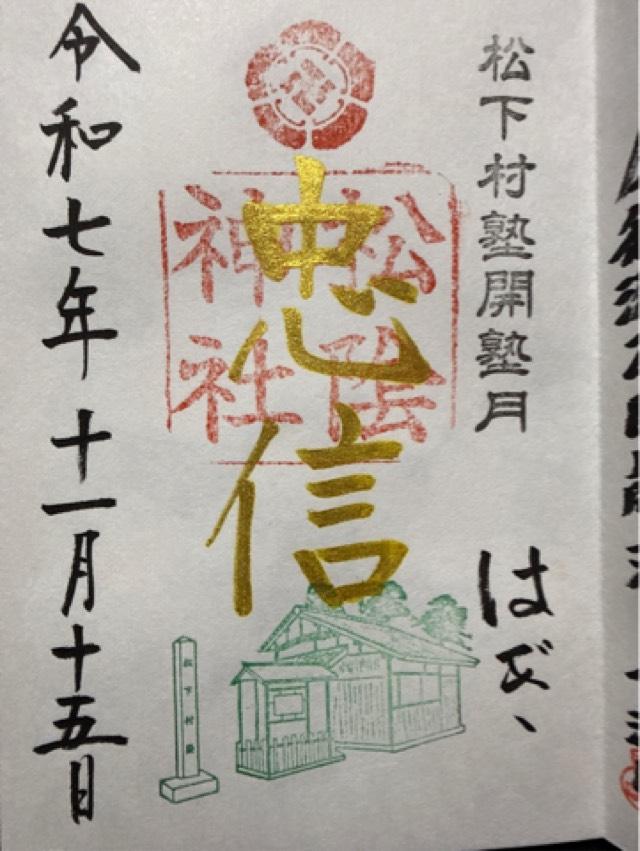 松下村塾開塾月
はぎ、
忠信
松陰
神社
松下村塾
令和七年十一月十五日